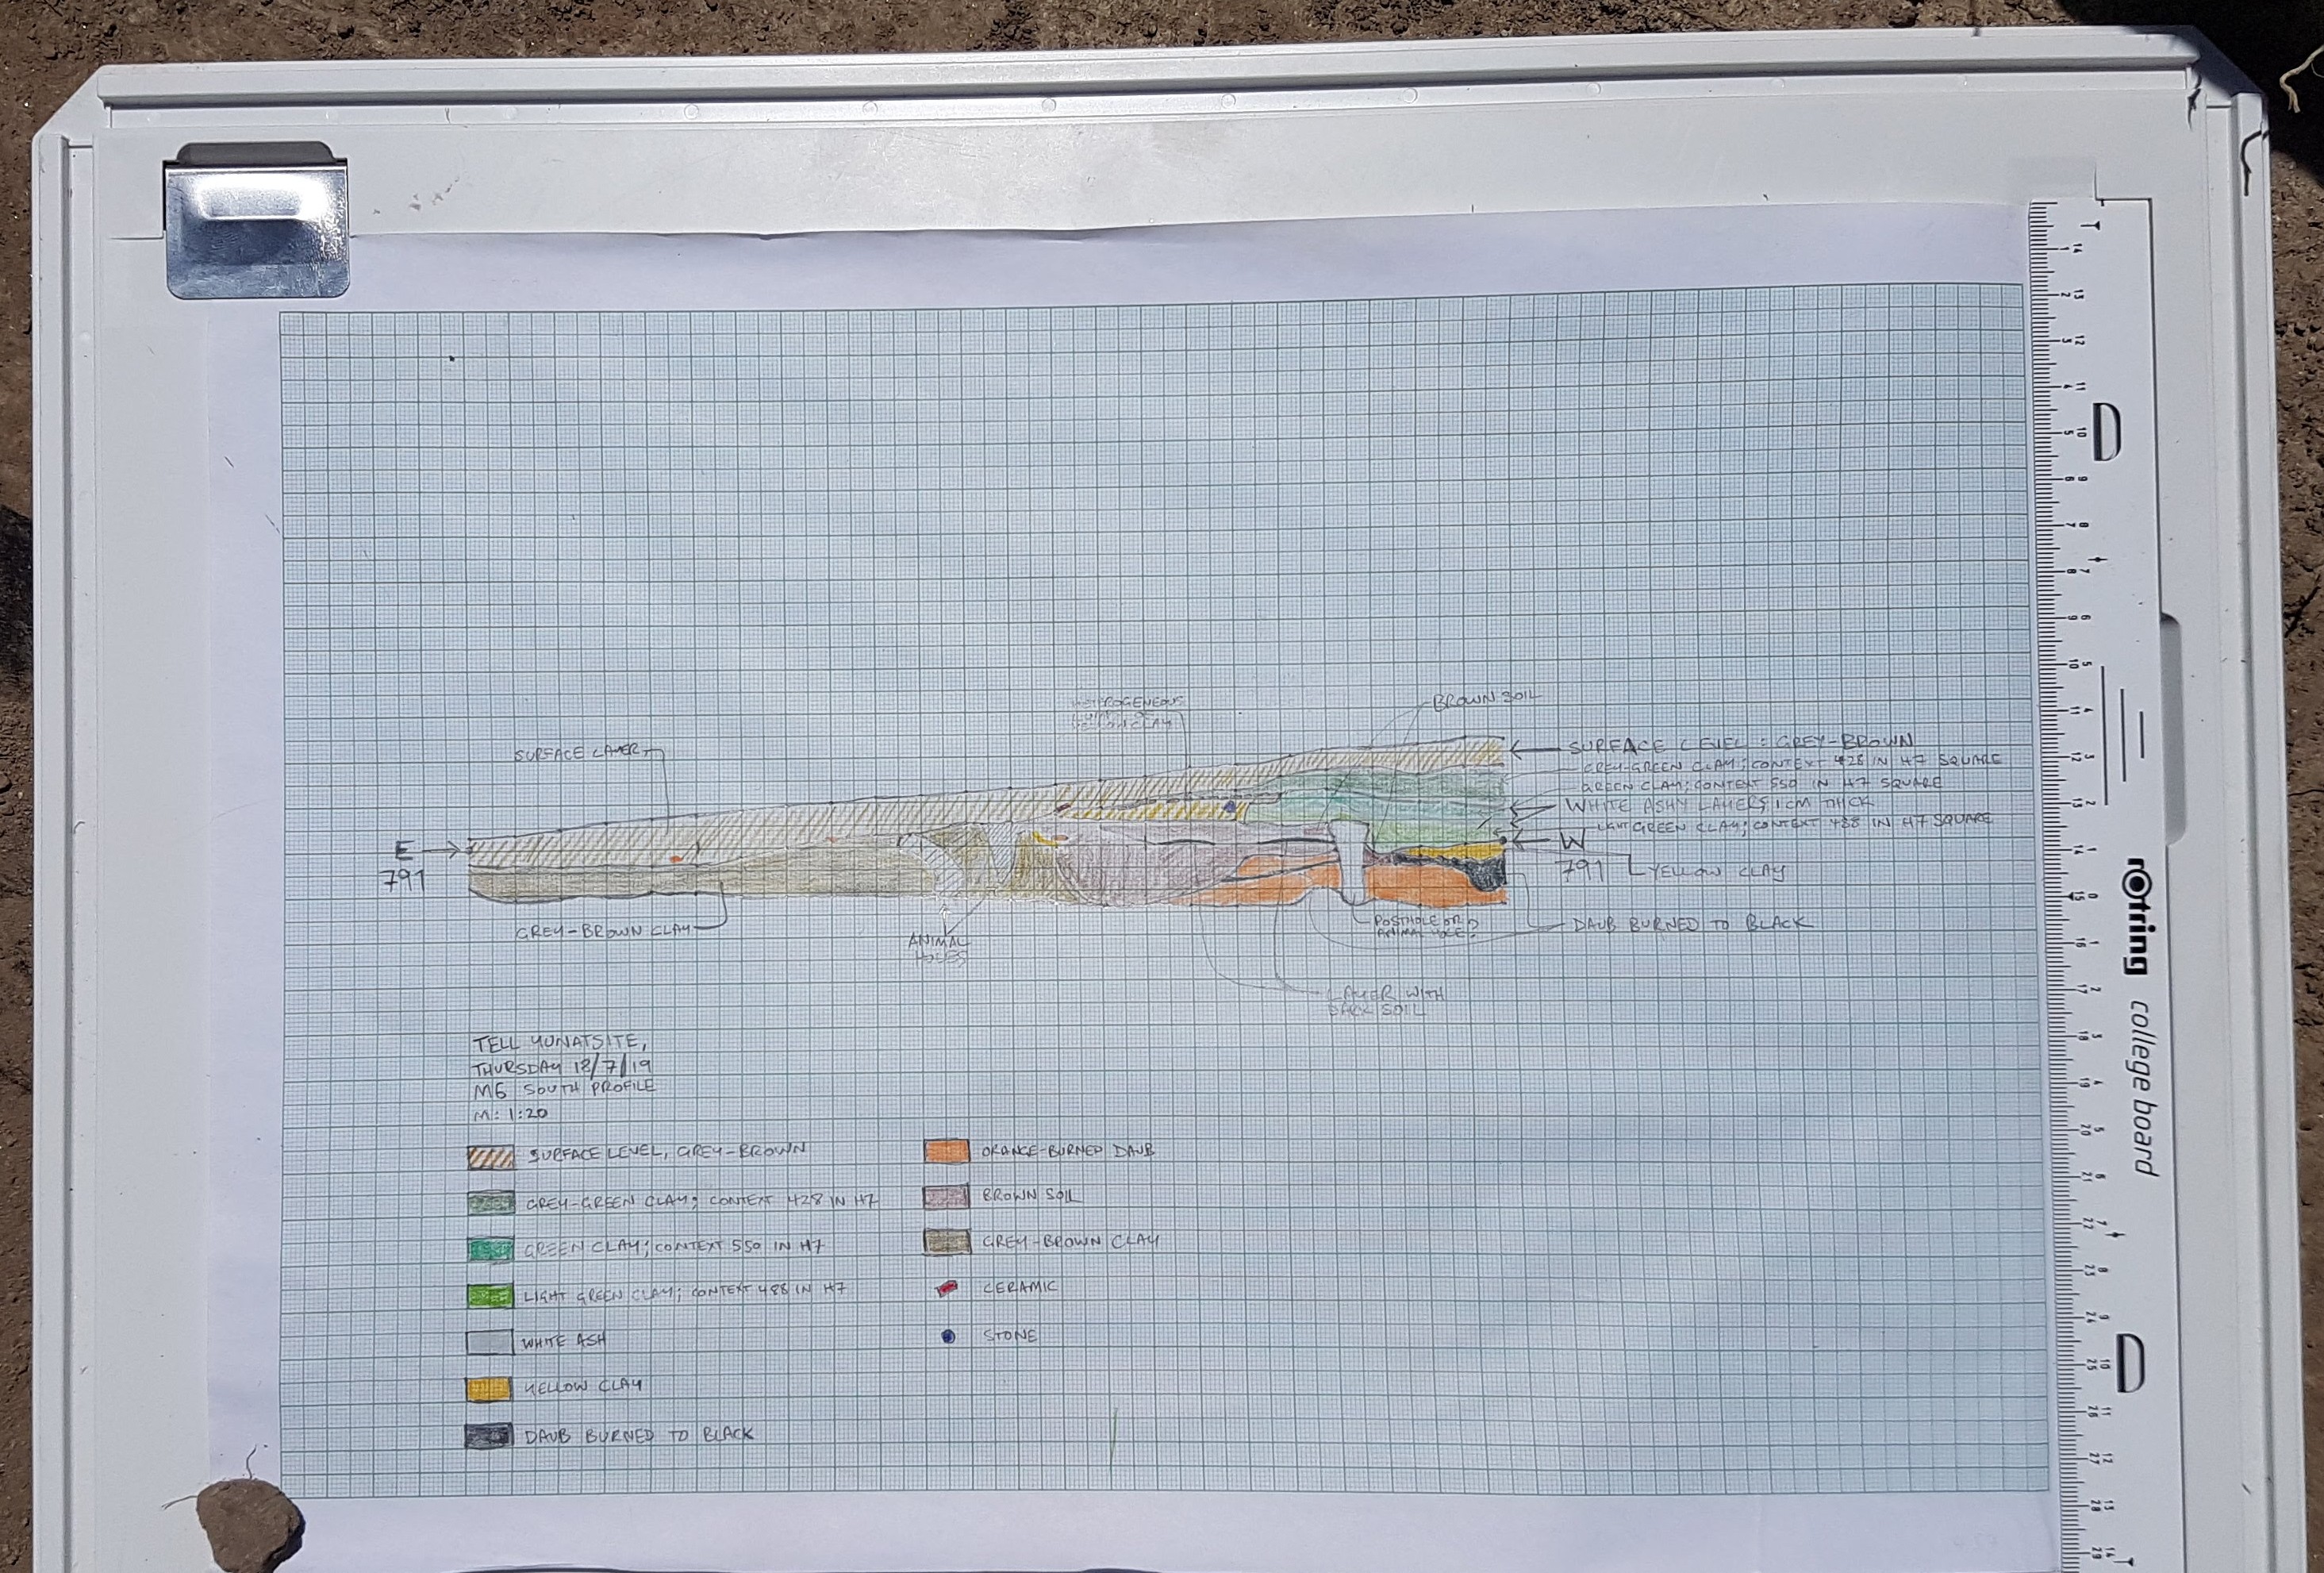 BROWN SOIL
SURFACE LAYER
SURFACE LEVEL: GREY-BROWN
GREY-GREEN CLAY; CONTEXT 428 IN H7 SQUARE
GREEN CLAY; CONTEXT 550 IN H7 SQUARE
WHITE ASHY LAYERS, 1CM THICK
LIGHT GREEN CLAY; CONTEXT 488 IN H7 SQUARE
E
791
W
791
YELLOW CLAY
GREY-BROWN CLAY
ANIMAL
HOLES
POSTHOLE OR
ANIMAL HOLE?
DAUB BURNED TO BLACK
LAYER WITH
SOIL
TELL YUNATSITE,
THURSDAY 18/7/19
M6 SOUTH PROFILE
M: 1:20
SURFACE LEVEL, GREY-BROWN
GREY-GREEN CLAY; CONTEXT 428 IN H7
GREEN CLAY; CONTEXT 550 IN H7
LIGHT GREEN CLAY; CONTEXT 488 IN H7
WHITE ASH
YELLOW CLAY
DAUB BURNED TO BLACK
ORANGE-BURNED DAUB
BROWN SOIL
GREY-BROWN CLAY
CERAMIC
STONE
rotring college board